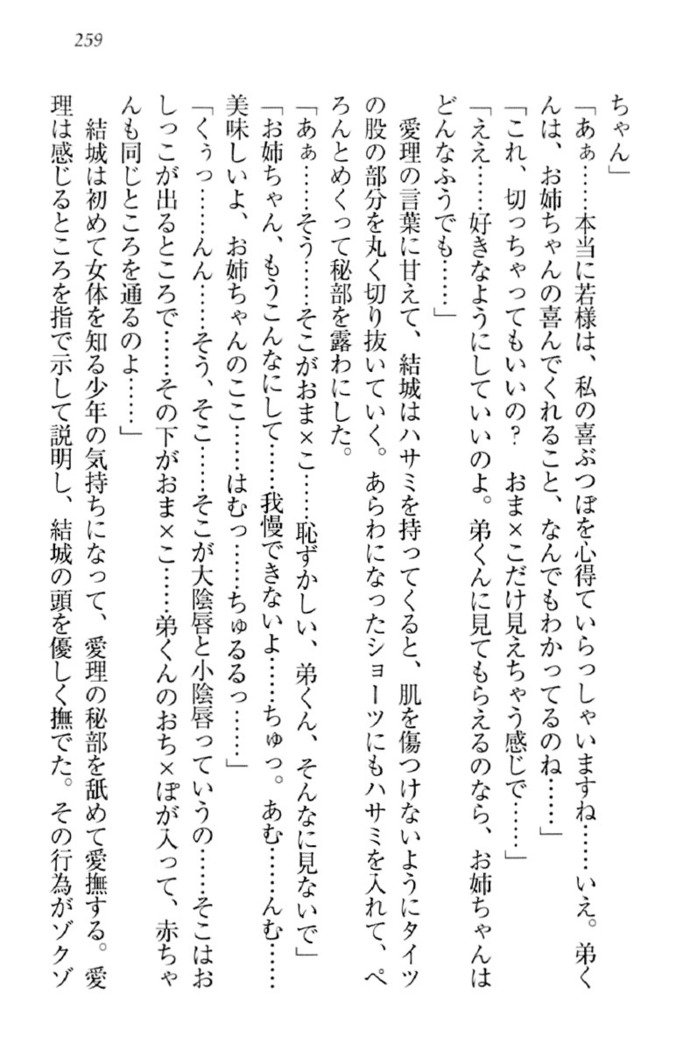 259
ちゃん」
「あぁ……本当に若様は、私の喜ぶつぼを心得ていらっしゃいますね……いえ。弟く
んは、お姉ちゃんの喜んでくれること、なんでもわかってるのね……」
「これ、切っちゃってもいいの？　おま×こだけ見えちゃう感じで……」
「ええ……好きなようにしていいのよ。弟くんに見てもらえるのなら、お姉ちゃんは
どんなふうでも……」
　愛理の言葉に甘えて、結城はハサミを持ってくると、肌を傷つけないようにタイツ
の股の部分を丸く切り抜いていく。あらわになったショーツにもハサミを入れて、ペ
ろんとめくって秘部を露わにした。
「あぁ……そう……そこがおま×こ……恥ずかしい、弟くん、そんなに見ないで」
「お姉ちゃん、もうこんなにして……我慢できないよ……ちゅっ。あむ……んむ……
美味しいよ、お姉ちゃんのここ……はむっ……ちゅるるっ……」
「くぅっ……んん……そう、そこ……そこが大陰唇と小陰唇っていうの……そこはお
しっこが出るところで……その下がおま×こ……弟くんのおち×ぽが入って、赤ちゃ
んも同じところを通るのよ……」
　結城は初めて女体を知る少年の気持ちになって、愛理の秘部を舐めて愛撫する。愛
理は感じるところを指で示して説明し、結城の頭を優しく撫でた。その行為がゾクゾ